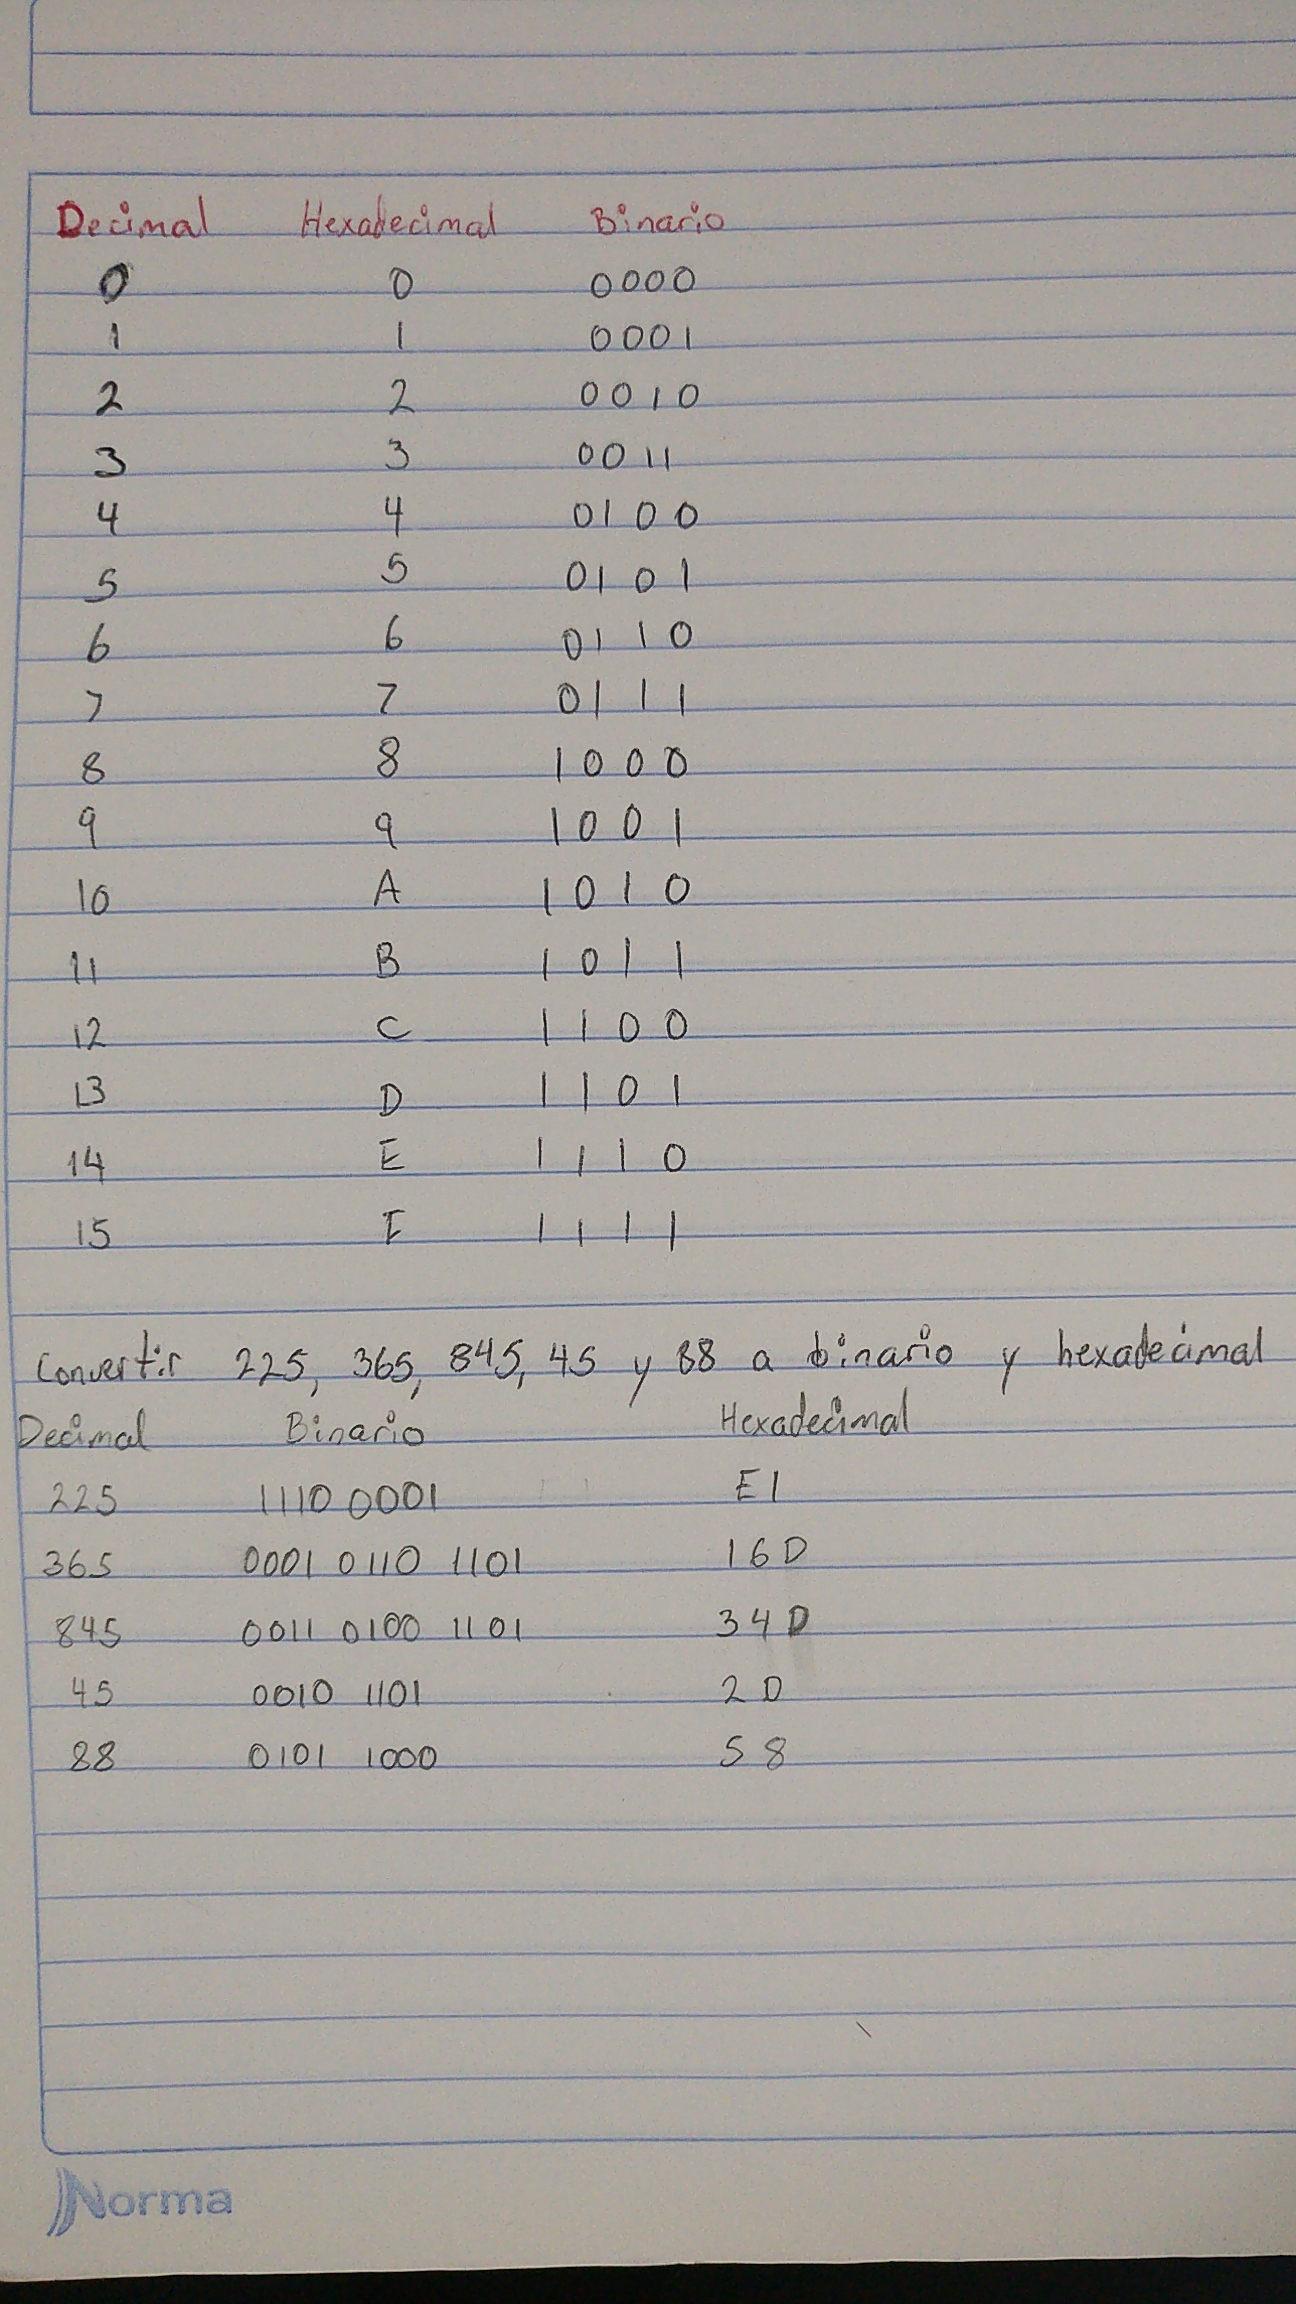 Decimal Hexadecimal Binario
0 0 0000
1 1 0001
2 2 0010
3 3 0011
4 4 0100
5 5 0101
6 6 0110
7 7 0111
8 8 1000
9 9 1001
10 A 1010
11 B 1011
12 C 1100
13 D 1101
14 E 1110
15 F 1111
Convertir 225, 365, 845, 45 y 88 a binario y hexadecimal
Decimal Binario Hexadecimal
225 1110 0001 E1
365 0001 0110 1101 16D
845 0011 0100 1101 34D
45 0010 1101 2D
88 0101 1000 58
Norma